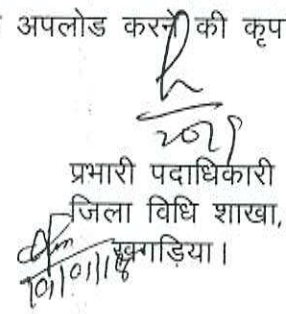 अपलोड करने की कृप
प्रभारी पदाधिकारी
जिला विधि शाखा,
खगड़िया।